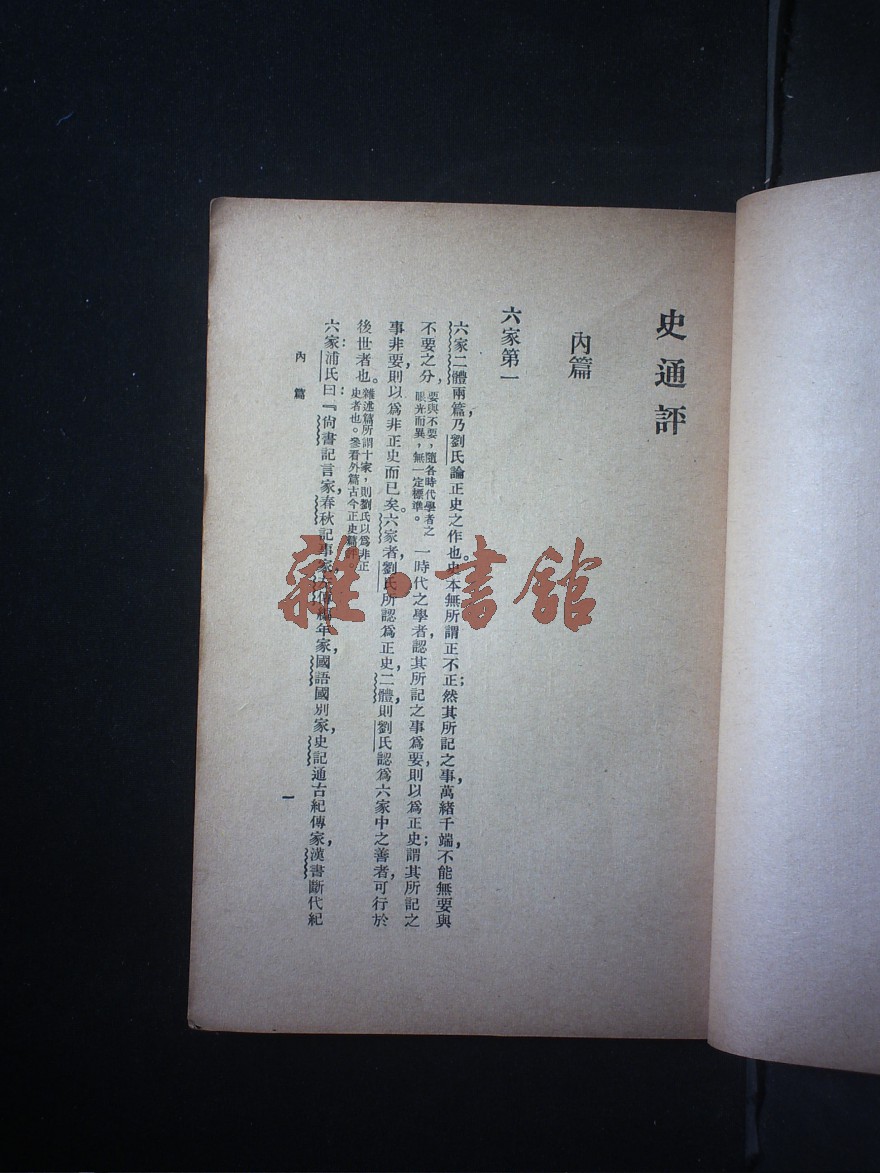 史通評
內篇
六家第一
六家二體兩篇，乃劉氏論正史之作也。史本無所謂正不正；然其所記之事，萬緒千端，不能無要與
不要之分，要與不要，隨各時代學者之眼光而異，無一定標準。一時代之學者，認其所記之事爲要，則以爲正史；謂其所記之
事非要，則以爲非正史而已矣。六家者，劉氏所認爲正史，二體，則劉氏認爲六家中之善者，可行於
後世者也。雜述篇所謂十家，則劉氏以爲非正史者也。參看外篇古今正史篇評。
六家：浦氏曰：『尙書記言家，春秋記事家，左傳編年家，國語國別家，史記通古紀傳家，漢書斷代紀
內篇
一
雜·書館